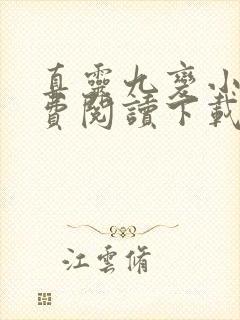 真靈九變小
費閱讀下載
江雲脩